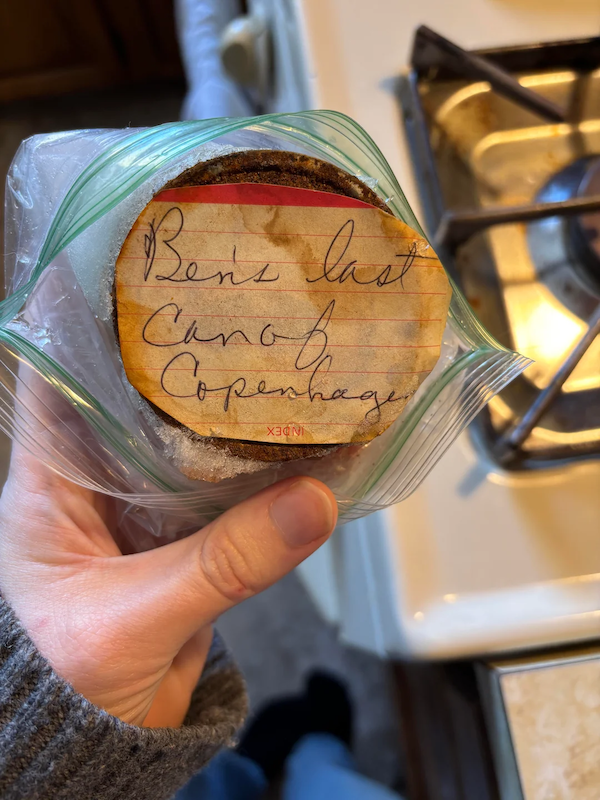 Ben's last
Can of
Copenhagen
INDEX